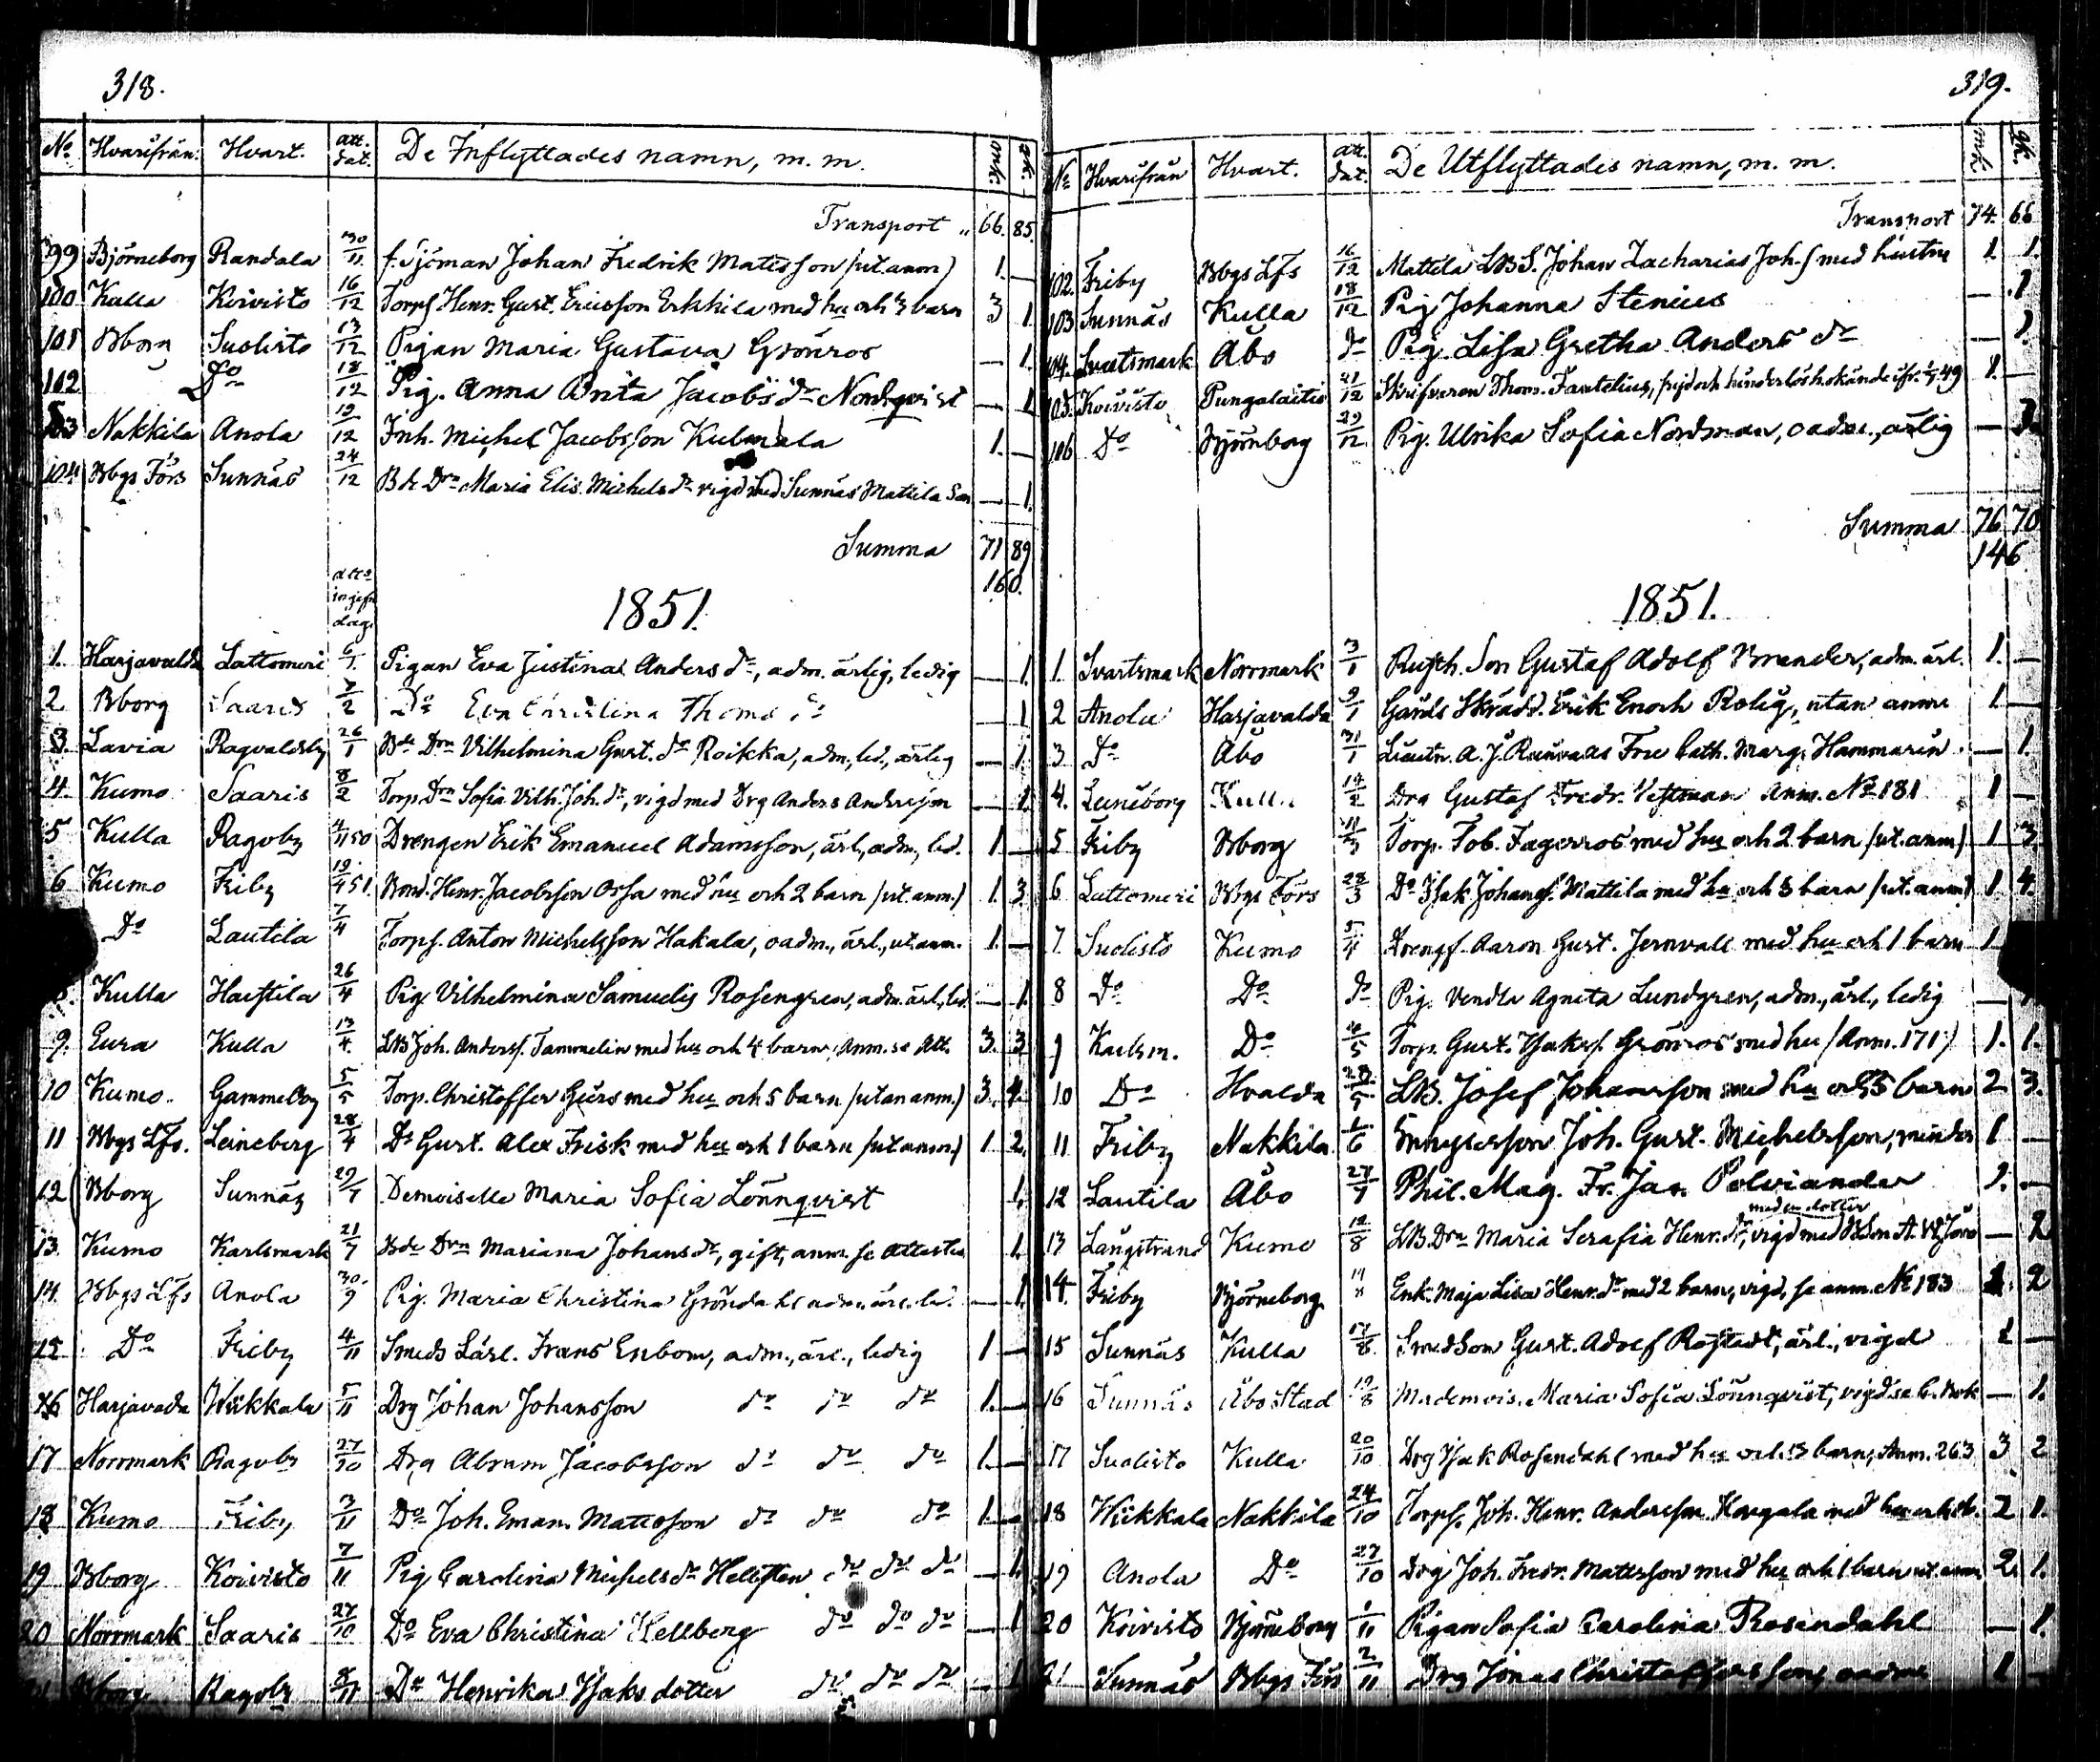 318.
No. Hvarifrån. Hvart. att. dat. De Inflyttades namn, m. m. mk. qk.
Transport „ 66. 85.
99 Björneborg Randala 30/11 f. Sjöman Johan Fredrik Matsson (ut. anm) 1. —
100 Kulla Koivisto 16/12 Torpf. Henr. Gust. Ericsson Erkkila med hu och 3 barn 3 1.
101 Bborg Suolisto 13/12 Pigan Maria Gustava Grönros — 1.
102 Do 18/12 Pig. Anna Brita Jacobs dr Nordqvist — 1
103 Nakkila Anola 19/12 Inh. Michel Jacobsson Kulmala 1. —
104 Bbgs Förs Sunnäs 24/12 Bde Drn Maria Elis. Michels dr vigd med Sunnäs Mattila Son — 1.
Summa 71 89
160.
1851.
1. Harjavalda Lattomeri 6/1 Pigan Eva Justina Anders dr, adm. ärlig, ledig — 1.
2 Bborg Saaris 7/2 Do Eva Christina Thoms dr — 1
3. Lavia Ragvaldsby 26/1 Bde Drn Vilhelmina Gust. dr Roikka, adm, led., ärlig — 1.
4. Kumo Saaris 8/2 Torp. Drn Sofia Vilh. Joh. dr, vigd med Drg Anders Andersson — 1.
5 Kulla Ragvby 4/11 50 Drengen Erik Emanuel Adamsson, ärl, adm, led. 1. —
6 Kumo Friby 19/4 51. Bond. Henr. Jacobsson Ossa med hu och 2 barn (ut. anm.) 1. 3.
Do Lautila 7/4 Torpf. Anton Michelsson Hakala, oadm., ärl., ut anm. 1. —
8. Kulla Haistila 26/4 Pig. Vilhelmina Samuels Rosengren, adm. ärl., led. — 1.
9. Eura Kulla 13/4 LB Joh. Andersf. Tammelin med hu och 4 barn. Anm. se Att. 3. 3
10 Kumo. Gammelby 5/5 Torp. Christoffer Gürs med hu och 5 barn (utan anm.) 3. 4.
11 Bbgs Lfs. Leineberg 28/4 Do Gust. Alex Frisk med hu och 1 barn (ut anm) 1 2.
12 Bborg Sunnäs 29/7 Demoiselle Maria Sofia Lönnqvist 1.
13. Kumo Karlsmark 21/7 Bde Drn Mariana Johans dr, gift, anm. se attesten 1.
14. Bbgs Lfs Anola 30/9 Pig. Maria Christina Gröndahl adm. ärl. led. — 1.
15 Do Friby 4/11 Smeds Lärl. Frans Enbom, adm., ärl., ledig 1 —
16 Harjavalda Wikkala 5/11 Drg Johan Johansson do do do 1. —
17 Norrmark Ragvby 27/10 Drg Abram Jacobsson do do do 1. —
18 Kumo Friby 3/11 Do Joh. Eman. Matsson do do do 1. —
19 Bborg Koivisto 7/11 Pig Carolina Michels dr Helesten do do do — 1.
20 Norrmark Saaris 27/10 Do Eva Christina Hellberg do do do — 1
Bborg Ragvby 8/11 Do Henrika Isaks dotter do do do — 1
319.
No Hvarifrån Hvart. att. dat. De Utflyttades namn, m. m. mk. qk.
Transport 74. 66
102. Friby Bbgs Lfs 16/12 Mattila LBS. Johan Zacharias Joh.s. med hustru 1. 1.
103 Sunnäs Kulla 18/12 Pig Johanna Stenius — 1
104. Svartsmark Åbo do Pig. Lisa Gretha Anders dr — 1.
105. Koivisto Pungalaitio 21/12 Skrifvaren Thom. Fastelius, 1. —
106 Do Björnborg 29/12 Pig. Ulrika Sofia Nordman, oadm., ärlig — 1.
Summa 76 70
146
1851.
1 Svartsmark Norrmark 3/1 Rusth. Son Gustaf Adolf Brander, adm. ärl. 1. —
2 Anola Harjavalda 9/1 Gårds Skrädd. Erik Enoch Rolig, utan anm 1 —
3 Do Åbo 31/1 Lieutn. A. J. Fru Cath. Marg. Hammarin — 1.
4. Leineborg Kulla 14/2 Drg Gustaf Fredr. Vestman Anm. No 181 1 —
5 Friby Bborg 11/3 Torp. Tob. Fagerros med hu och 2 barn (ut. anm) 1 3.
6 Lattomeri Bbgs Förs 28/3 Do Isak Johansf. Mattila med hu och 3 barn (ut. anm.) 1 4.
7. Suolisto Kumo 5/4 Drengf. Aaron Gust. Jernvall med hu och 1 barn 1
8 Do Do do Pig. Vendla Agneta Lundgren, adm., ärl., ledig —
9 Karlsm. Do 4/5 Torp. Gust. Isaksf. Grönroos med hu (Anm. 171) 1. 1.
10 Do Hvalda 28/5 LB. Josef Johansson med hu och 5 barn 2 3.
11 Friby Nakkila 1/6 Joh. Gust. Michelsson, 1 —
12 Lautila Åbo 27/7 Phil. Mag. Fr. Jac. Polviander 1. —
med en dotter
13 Långstrand Kumo 12/8 LB. Drn Maria Serafia Henr. dr, vigd med — 2
14. Friby Björneborg 11/8 Enk. Maja Lisa Henr. dr med 2 barn, vigd, se anm. No 183 1. 2
15 Sunnäs Kulla 17/8 Smedson Gust. Adolf Rostedt, ärl., vigd 1 —
16 Sunnäs Åbo Stad 19/8 Mademois. Maria Sofia Lönnqvist, vigd se C. Bok — 1.
17 Suolisto Kulla 20/10 Drg Isak Rosendahl med hu och 3 barn, Anm. 263 3 2
18 Wikkala Nakkila 24/10 Torpf. Joh. Henr. Andersson Kargala med hu och 2 1.
19 Anola Do 27/10 Drg Joh. Fredr. Mattsson med hu och 1 barn ut. anm 2. 1.
20 Koivisto Björneborg 1/11 Pigan Sofia Carolina Rosendahl — 1.
21 Sunnäs Bbgs Förs 2/11 Drg Jonas Christoffersson, oadm 1